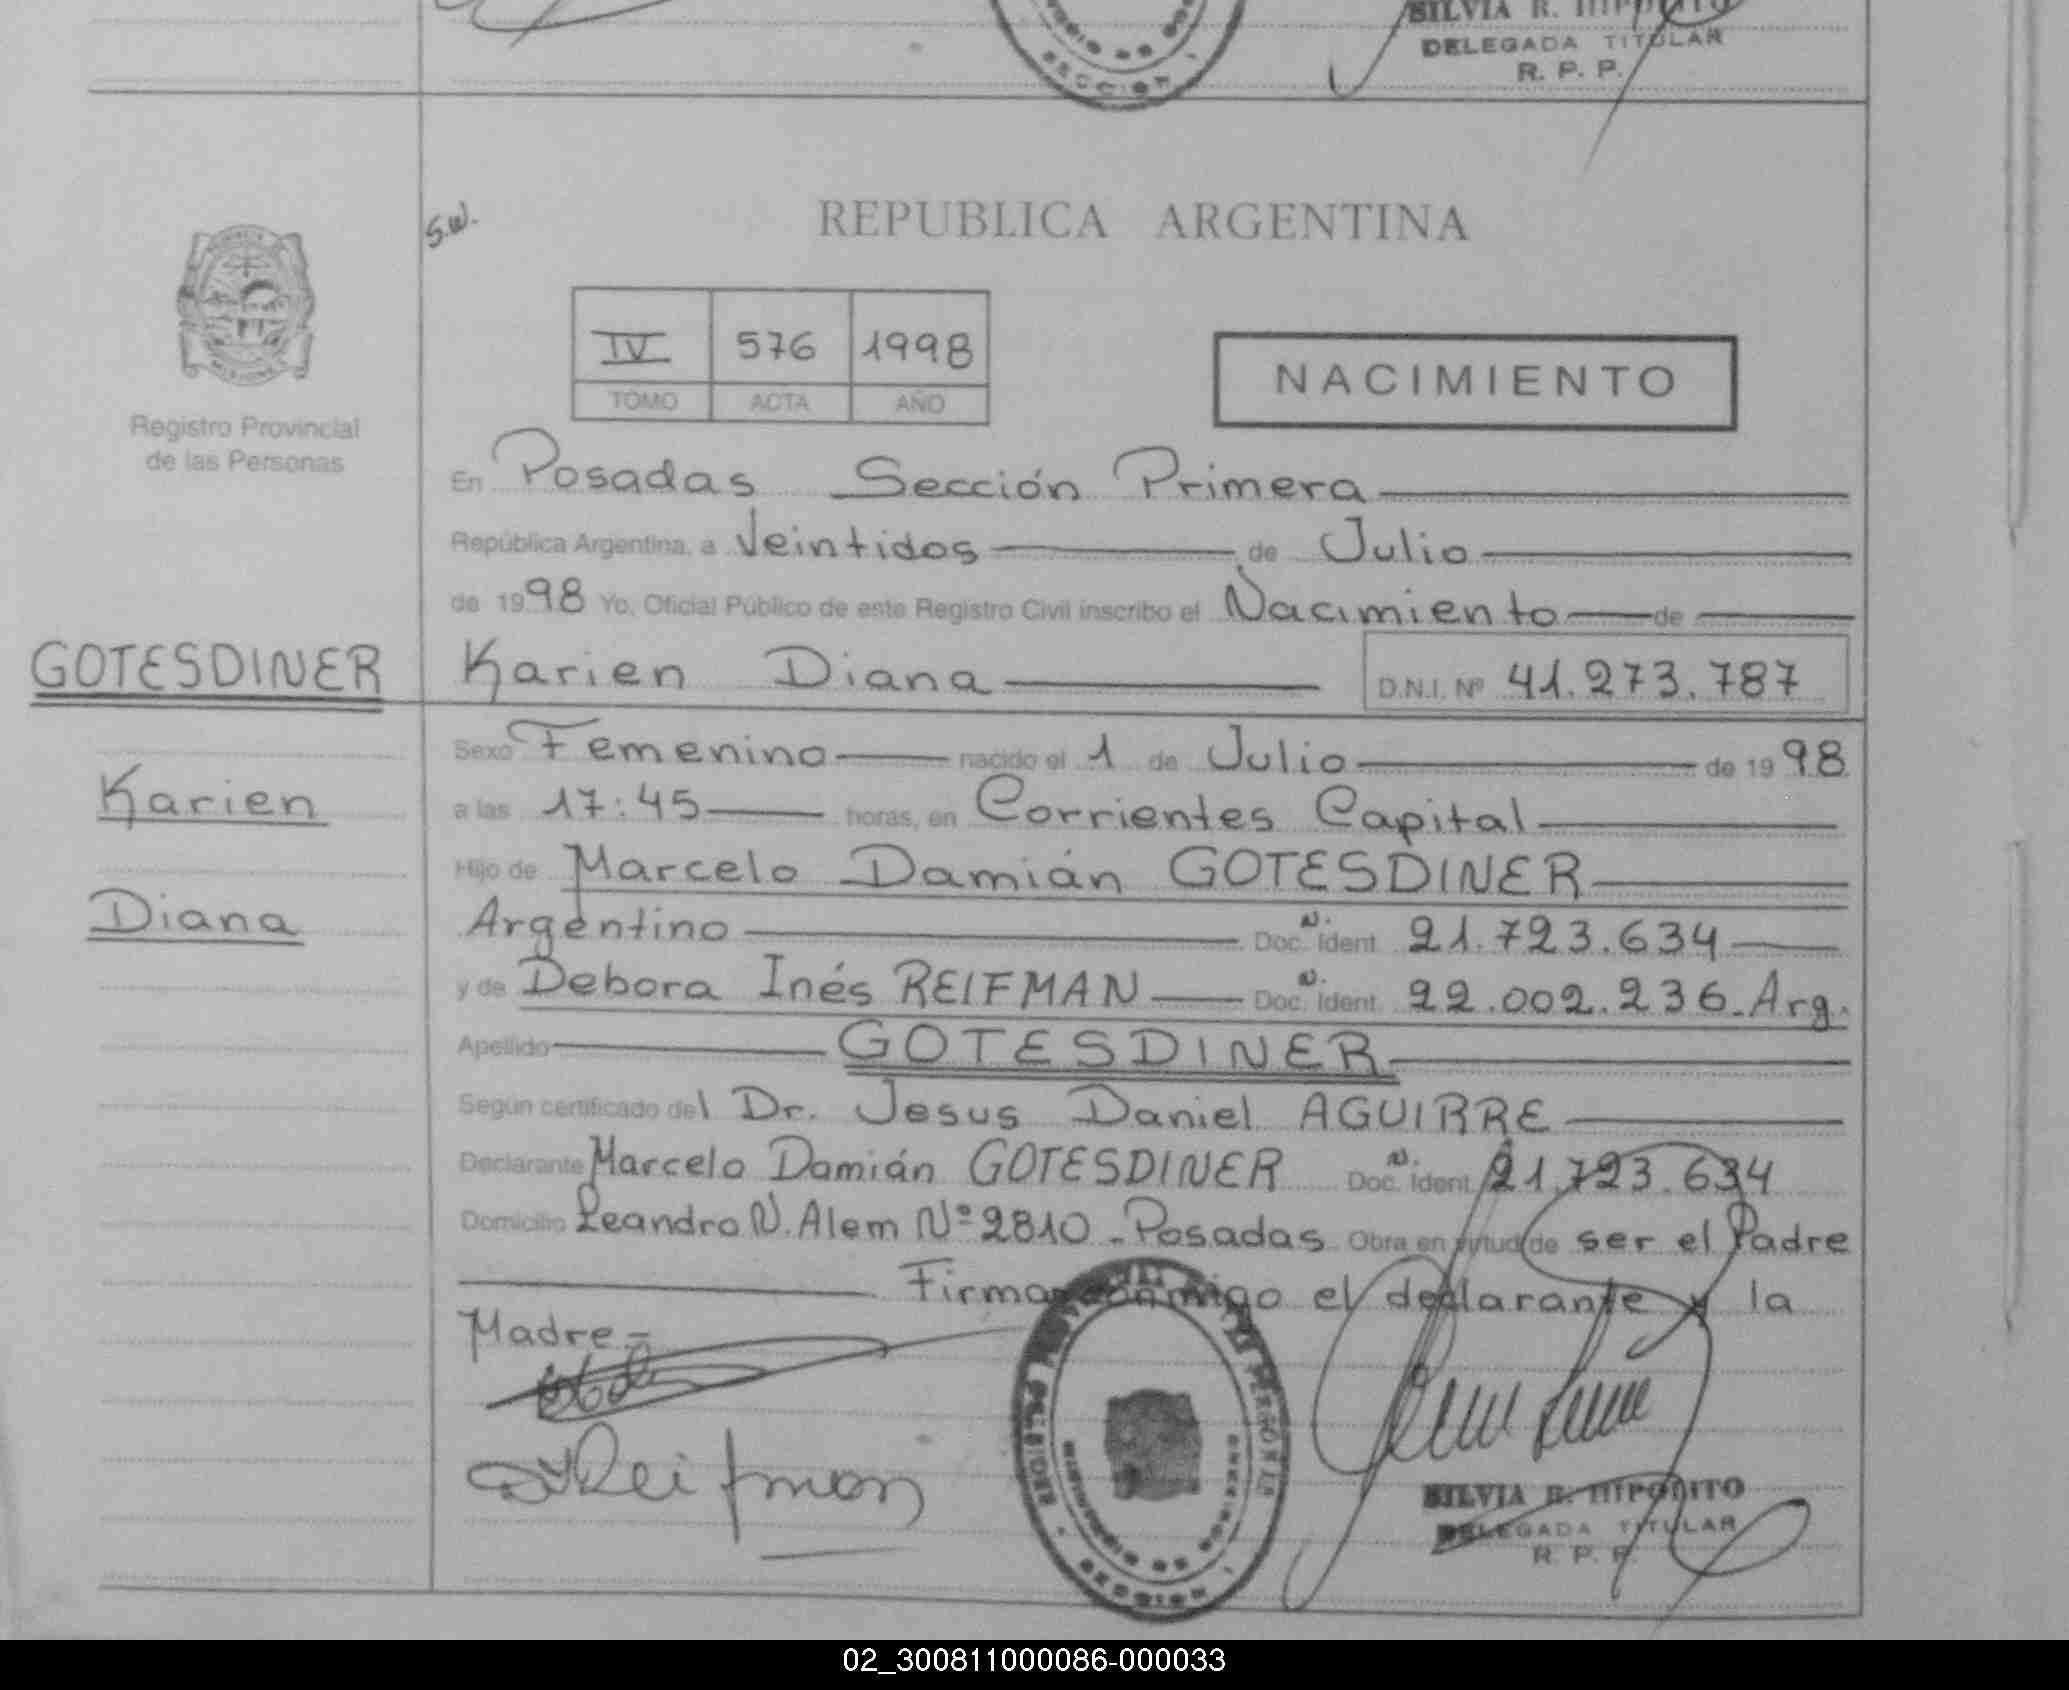 SILVIA R. HIPOLITO
DELEGADA TITULAR
R. P. P.
SECCION 1
S.W.
REPUBLICA ARGENTINA
IV 576 1998
TOMO ACTA AÑO
NACIMIENTO
Registro Provincial
de las Personas
En Posadas Sección Primera
República Argentina, a Veintidos de Julio
de 1998 Yo, Oficial Público de este Registro Civil inscribo el Nacimiento de
GOTESDINER
Karien Diana D.N.I. Nº 41.273.787
Sexo Femenino nacido el 1 de Julio de 1998
Karien
a las 17:45 horas, en Corrientes Capital
Hijo de Marcelo Damián GOTESDINER
Diana
Argentino Doc. N. Ident. 21.723.634
y de Debora Inés REIFMAN Doc. N. Ident. 22.002.236-Arg.
Apellido GOTESDINER
Según certificado del Dr. Jesus Daniel AGUIRRE
Declarante Marcelo Damián GOTESDINER Doc. N. Ident. 21.723.634
Domicilio Leandro N. Alem Nº 2810-Posadas Obra en virtud de ser el Padre
Firman conmigo el declarante y la
Madre.-
Reifman
SILVIA R. HIPOLITO
DELEGADA TITULAR
R. P. P.
02_300811000086-000033